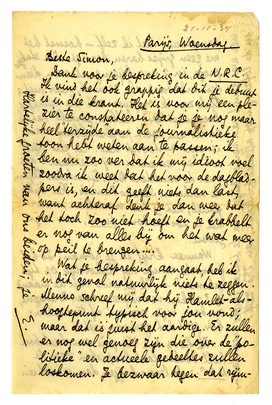 21-11-34
Parijs, Woensdag
Beste Simon,
Dank voor je bespreking in de N.R.C.
Ik vind het ook grappig dat dit je debuut
is in die krant. Het is voor mij een ple-
zier te constateeren dat je je nog maar
heel terzijde aan de journalistieke
toon hebt weten aan te passen; ik
ben nu zoo ver dat ik mij idioot voel
zoodra ik weet dat het voor de dagbla-
pers is, en dit geeft niets dan last,
want achteraf denk je dan weer dat
het toch zoo niet hoeft en je krabbelt
er nog van alles bij om het wat meer
op peil te brengen....
Wat je bespreking aangaat heb ik
in dit geval natuurlijk niets te zeggen.
Menno schreef mij dat hij Hamlet-als-
hoogtepunt typisch voor jou vond;
maar dat is juist het aardige. Er zullen
er nog wel genoeg zijn die ons de "po-
litieke" en actueele gedeeltes zullen
loskomen. Je bezwaar tegen dat
Hartelijke groeten van ons beiden, je E.